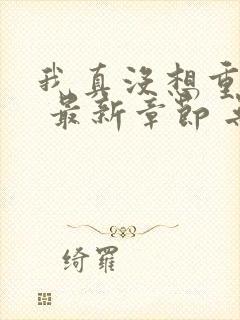 我真没想重
最新章节
绮罗